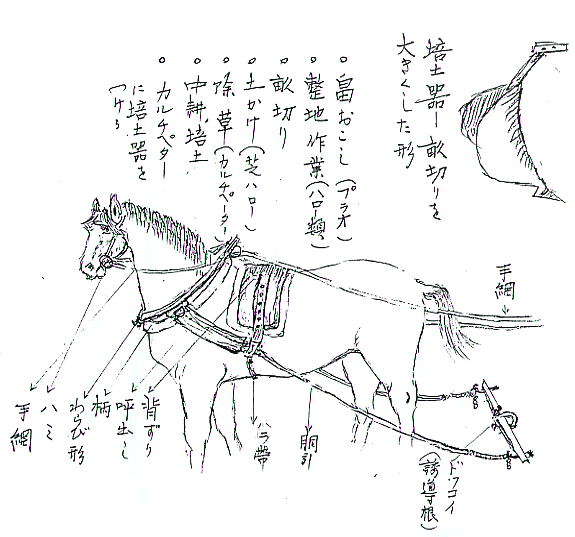 培土器ー畝切りを
大きくした形
○ 畠おこし(プラオ)
○ 整地作業(ハロー類)
○ 畝切り
○ 土かけ(芝ハロー)
○ 除草(カルチベーター)
○ 中耕、培土
○ カルチベター
に培土器を
つける
手綱
手綱
ハミ
わらび形
柄
呼出し
背ずり
ハラ帯
胴引
ドッコイ
(誘導根)